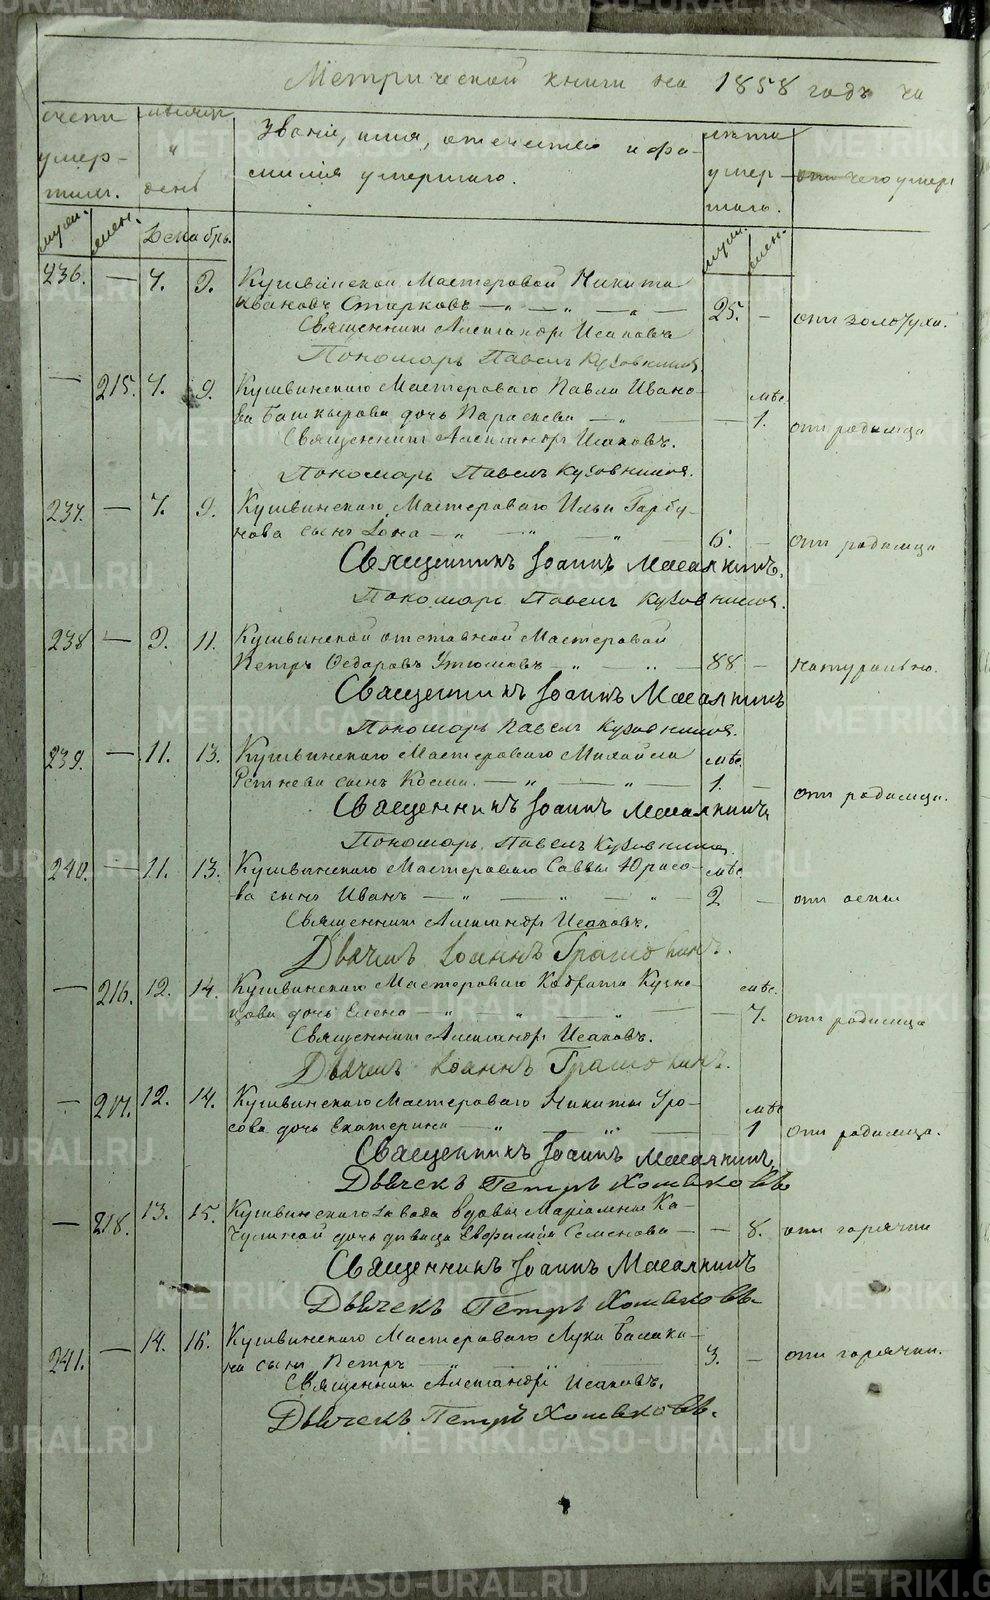 Метрической книги на 1858 годъ ча
счетъ умер-
шихъ.
муж. жен.
мѣсяцъ и день
Декабрь.
Званіе, имя, отчество и фа-
милія умершаго.
лѣта умер-
шаго.
муж. жен.
отъ чего умеръ
236. — 7. 9. Кушвинской Мастеровой Никита
Ивановъ Старковъ — „ — „ — „ — 25. — отъ золотухи.
Священникъ Александръ Исаковъ
Пономарь Павелъ
— 215. 7. 9. Кушвинскаго Мастероваго Павла Ивано- мѣс.
ва Башкырова дочь Параскева — „ — 1. отъ родимца
Священникъ Александръ Исаковъ.
Пономарь Павелъ
237. — 7. 9. Кушвинскаго Мастероваго Ильи Горбу-
нова сынъ Іона — „ — „ — „ — 5. — отъ родимца
Священникъ Іоаннъ
Пономарь Павелъ
238 — 9. 11. Кушвинской отставной Мастеровой
Петръ Ѳедоровъ Утюмовъ — „ — „ — 88 — натурально.
Священникъ Іоаннъ
Пономарь Павелъ
239. — 11. 13. Кушвинскаго Мастероваго Михайла мѣс.
сынъ Косма. — „ — „ — 1. — отъ родимца.
Священникъ Іоаннъ
Пономарь Павелъ
240. — 11. 13. Кушвинскаго Мастероваго Саввы Юрасо- мѣс.
ва сынъ Иванъ — „ — „ — „ — 2 — отъ оспы
Священникъ Александръ Исаковъ.
Дьячекъ Іоаннъ
— 216. 12. 14. Кушвинскаго Мастероваго Кодрата Кузне- мѣс.
цова дочь Елена — „ — „ — „ — 7. отъ родимца
Священникъ Александръ Исаковъ.
Дьячекъ Іоаннъ
— 217. 12. 14. Кушвинскаго Мастероваго Никиты Уро- мѣс
сова дочь Екатерина — „ — „ — 1 отъ родимца.
Священникъ Іоаннъ
Дьячекъ Петръ Хомяковъ
— 218. 13. 15. Кушвинскаго Завода вдовы Маріамны Ка-
чуриной дочь девица Евфимія Семенова — — 8. отъ горячки
Священникъ Іоаннъ
Дьячекъ Петръ Хомяковъ
241. — 14. 16. Кушвинскаго Мастероваго Луки Балаки-
на сынъ Петръ — „ — „ — 3. — отъ горячки.
Священникъ Александръ Исаковъ.
Дьячекъ Петръ Хомяковъ.
METRIKI.GASO-URAL.RU